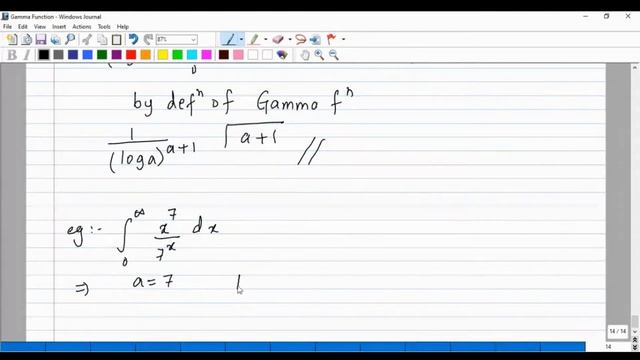 Gamma Function - Windows Journal
File Edit View Insert Actions Tools Help
87%
B I
by defⁿ of Gamma fⁿ
1/(log a)^(a+1) √(a+1) //
eg:- ∫₀^∞ x⁷/7ˣ dx
⇒ a = 7
14 / 14
14